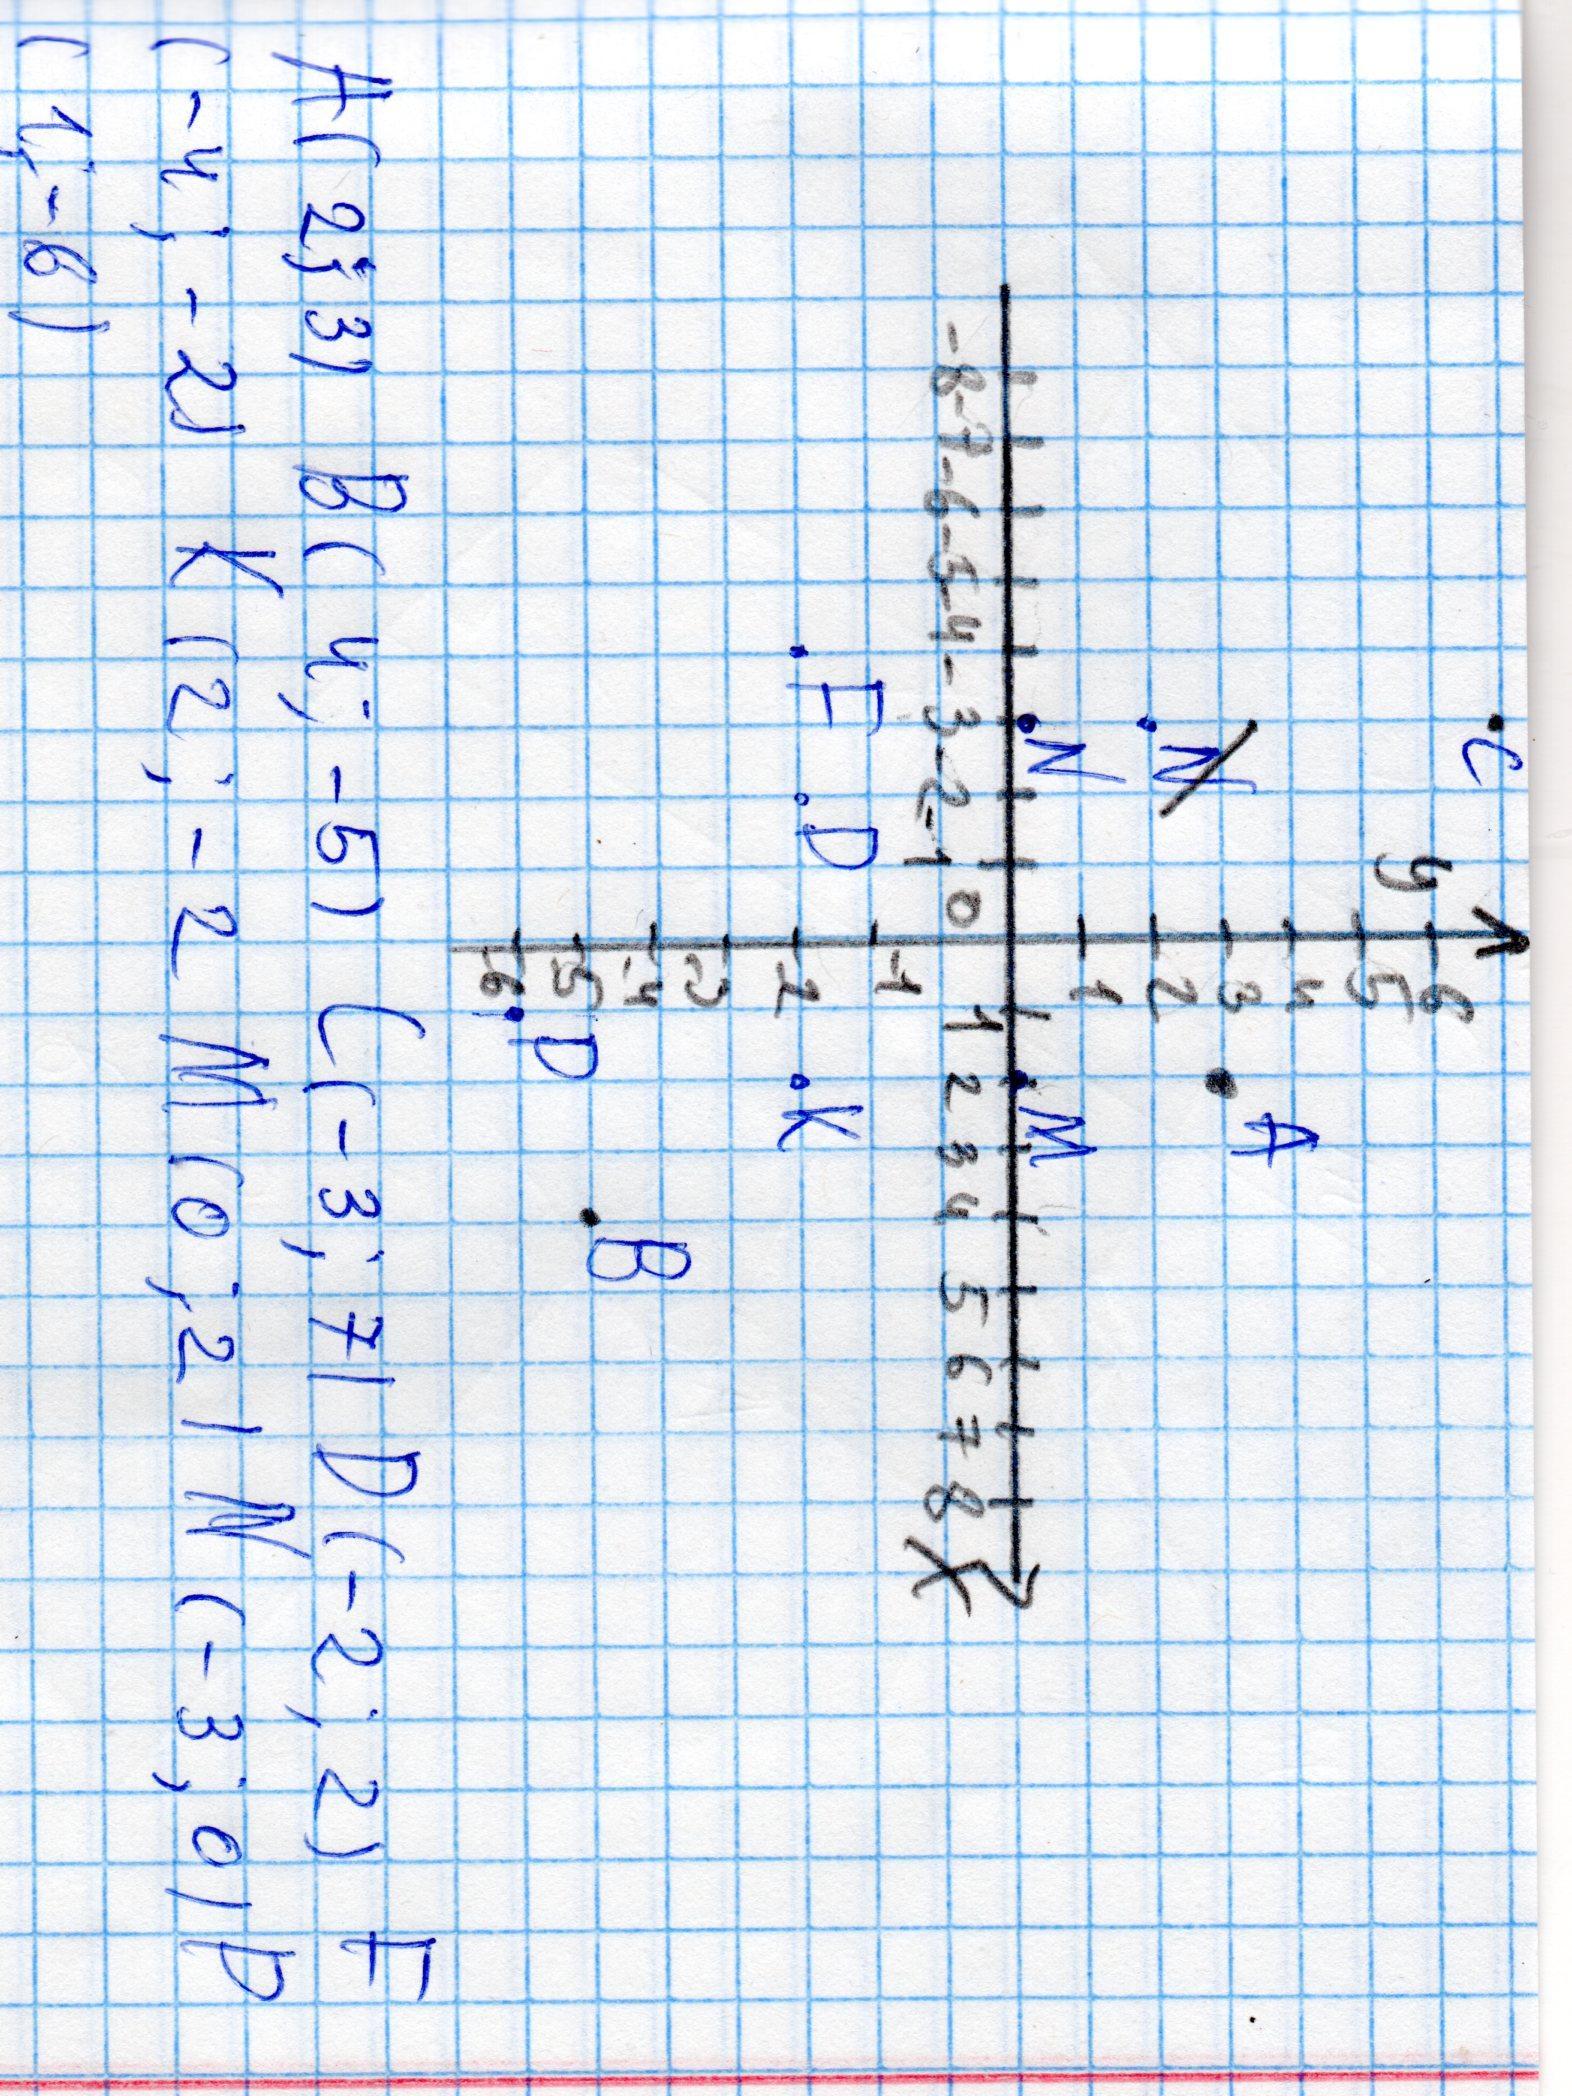 C
y 6
5
4
A
3
N
2
1
N M
-8 -7 -6 -5 -4 -3 -2 -1 0 1 2 3 4 5 6 7 8 X
-1
F D -2 K
-3
-4
B
-5
P
-6
A(2;3) B(4;-5) C(-3;7) D(-2;2) F
(-4;-2) K(2;-2 M(0;2) N(-3;0) P
(1;-6)